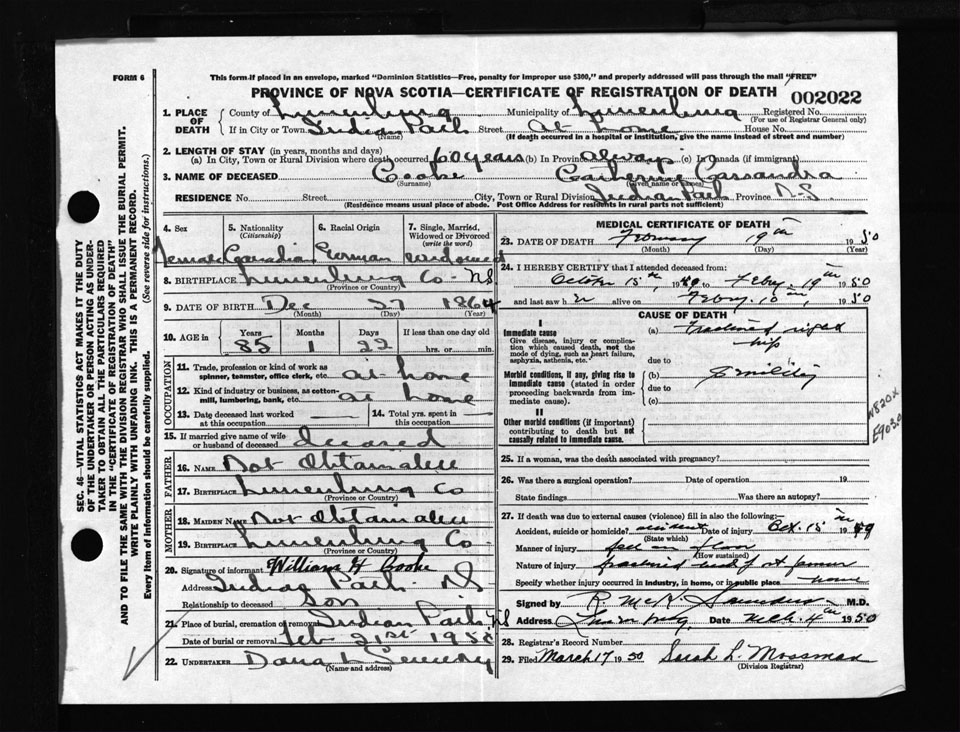 FORM 6
This form if placed in an envelope, marked "Dominion Statistics—Free, penalty for improper use $300," and properly addressed will pass through the mail "FREE"
PROVINCE OF NOVA SCOTIA—CERTIFICATE OF REGISTRATION OF DEATH
002022
1. PLACE OF DEATH County of Lunenburg Municipality of Lunenburg Registered No. (For use of Registrar General only)
If in City or Town Indian Path (Name) Street At home House No.
(If death occurred in a hospital or institution, give the name instead of street and number)
2. LENGTH OF STAY (in years, months and days)
(a) In City, Town or Rural Division where death occurred 60 years (b) In Province always (c) In Canada (if immigrant)
3. NAME OF DECEASED Cooke (Surname) Catherine Cassandra (Given name or names)
RESIDENCE No. Street City, Town or Rural Division Indian Path Province N.S
(Residence means usual place of abode. Post Office Address for residents in rural parts not sufficient)
4. Sex 5. Nationality (Citizenship) 6. Racial Origin 7. Single, Married, Widowed or Divorced (write the word)
Female Canadian German widowed
8. BIRTHPLACE Lunenburg Co - NS (Province or Country)
9. DATE OF BIRTH Dec 27 1864 (Month) (Day) (Year)
10. AGE in Years Months Days If less than one day old
85 1 22 hrs. or min.
OCCUPATION
11. Trade, profession or kind of work as spinner, teamster, office clerk, etc. at home
12. Kind of industry or business, as cotton-mill, lumbering, bank, etc. at home
13. Date deceased last worked at this occupation 14. Total yrs. spent in this occupation
15. If married give name of wife or husband of deceased
FATHER
16. NAME Not Obtainable
17. BIRTHPLACE Lunenburg Co (Province or Country)
MOTHER
18. MAIDEN NAME Not Obtainable
19. BIRTHPLACE Lunenburg Co (Province or Country)
20. Signature of informant William H Cooke
Address Indian Path - NS
Relationship to deceased Son
21. Place of burial, cremation or removal Indian Path, NS
Date of burial or removal Feb 21st 1950
22. UNDERTAKER Dana L (Name and address)
MEDICAL CERTIFICATE OF DEATH
23. DATE OF DEATH February 19th 1950 (Month) (Day) (Year)
24. I HEREBY CERTIFY that I attended deceased from:
October 15th, 1949 to Feby. 19th 1950
and last saw her alive on Feby. 10th, 1950
CAUSE OF DEATH
I
Immediate cause (a) Fractured right hip
Give disease, injury or complication which caused death, not the mode of dying, such as heart failure, asphyxia, asthenia, etc. due to
Morbid conditions, if any, giving rise to immediate cause (stated in order proceeding backwards from immediate cause). (b) Senility
due to
(c)
II
Other morbid conditions (if important) contributing to death but not causally related to immediate cause.
N820X
E903.0
25. If a woman, was the death associated with pregnancy?
26. Was there a surgical operation? Date of operation 19
State findings Was there an autopsy?
27. If death was due to external causes (violence) fill in also the following:
Accident, suicide or homicide? accident (State which) Date of injury Oct. 15th 1949
Manner of injury fell on floor (How sustained)
Nature of injury fractured neck of rt femur
Specify whether injury occurred in industry, in home, or in public place home
Signed by R McK. Saunders M.D.
Address Lunenburg Date 4th 1950
28. Registrar's Record Number
29. Filed March 17 1950 Sarah L. Mossman (Division Registrar)
SEC. 46—VITAL STATISTICS ACT MAKES IT THE DUTY
OF THE UNDERTAKER OR PERSON ACTING AS UNDERTAKER TO OBTAIN ALL THE PARTICULARS REQUIRED
IN THE "CERTIFICATE OF REGISTRATION OF DEATH"
AND TO FILE THE SAME WITH THE DIVISION REGISTRAR WHO SHALL ISSUE THE BURIAL PERMIT.
WRITE PLAINLY WITH UNFADING INK. THIS IS A PERMANENT RECORD.
Every item of information should be carefully supplied. (See reverse side for instructions.)